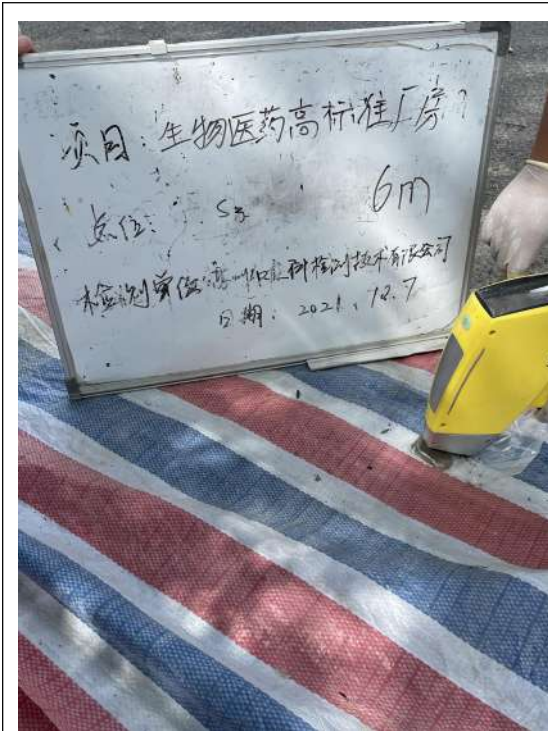 项目：生物医药高标准厂房
点位： S3 6m
检测单位 检测技术有限公司
日期：2021.12.7